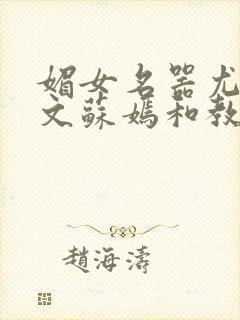 媚女名器尤
文蘇媽和教
趙海濤